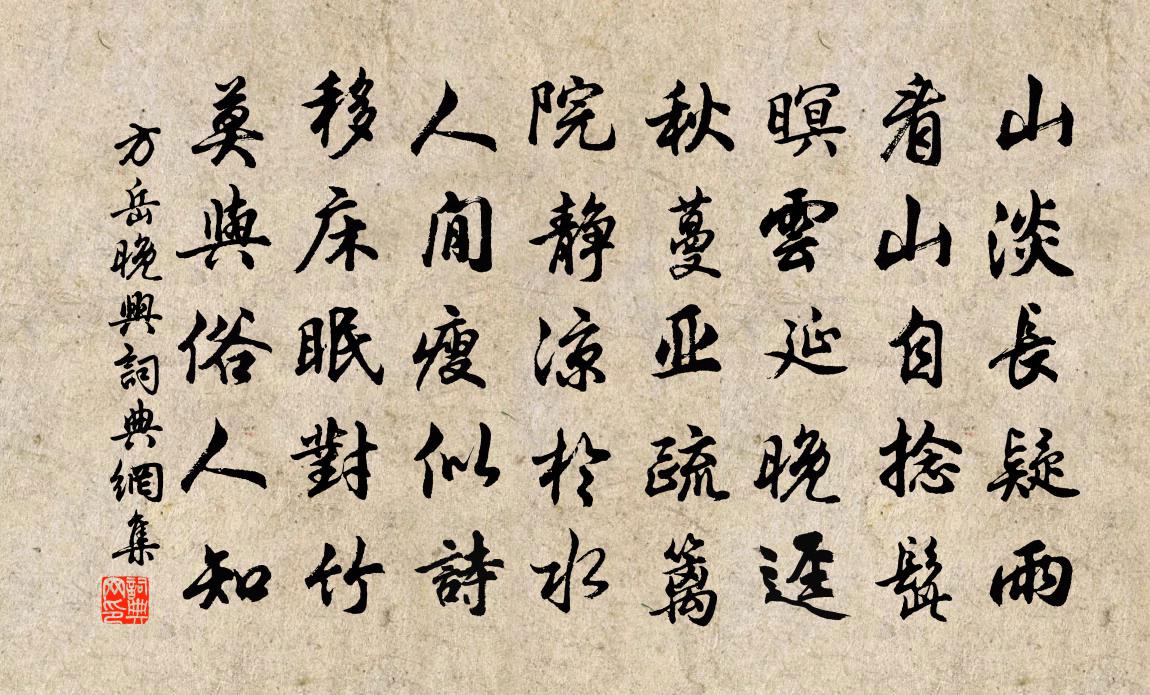 山淡長疑雨
看山自捻髭
暝雲延晚逕
秋蔓亞疏籬
院靜涼於水
人閒瘦似詩
移床眠對竹
莫與俗人知
方岳晚興詞典網集
詞典网印